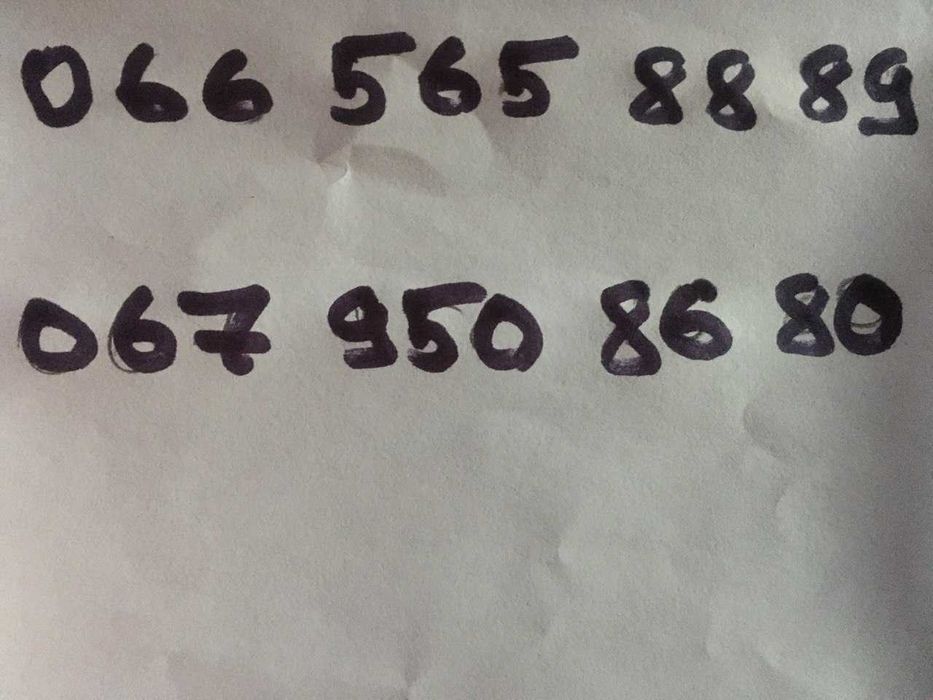 066 565 88 89
067 950 86 80